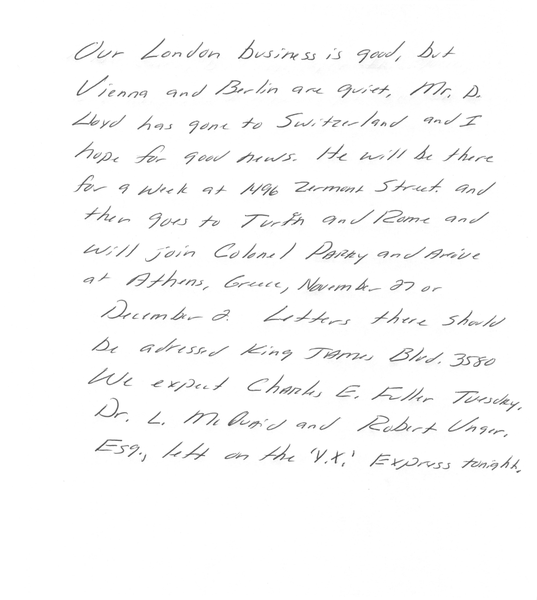 Our London business is good, but
Vienna and Berlin are quiet, Mr. D.
Lloyd has gone to Switzerland and I
hope for good news. He will be there
for a week at 1496 Zermont Street. and
then goes to Turin and Rome and
will join Colonel Parry and Arive
at Athens, Greece, November 27 or
December 2. Letters there should
be adressed King James Blvd. 3580
We expect Charles E. Fuller Tuesday.
Dr. L. McQuaid and Robert Unger.
Esq., left on the 'V.X.' Express tonight.